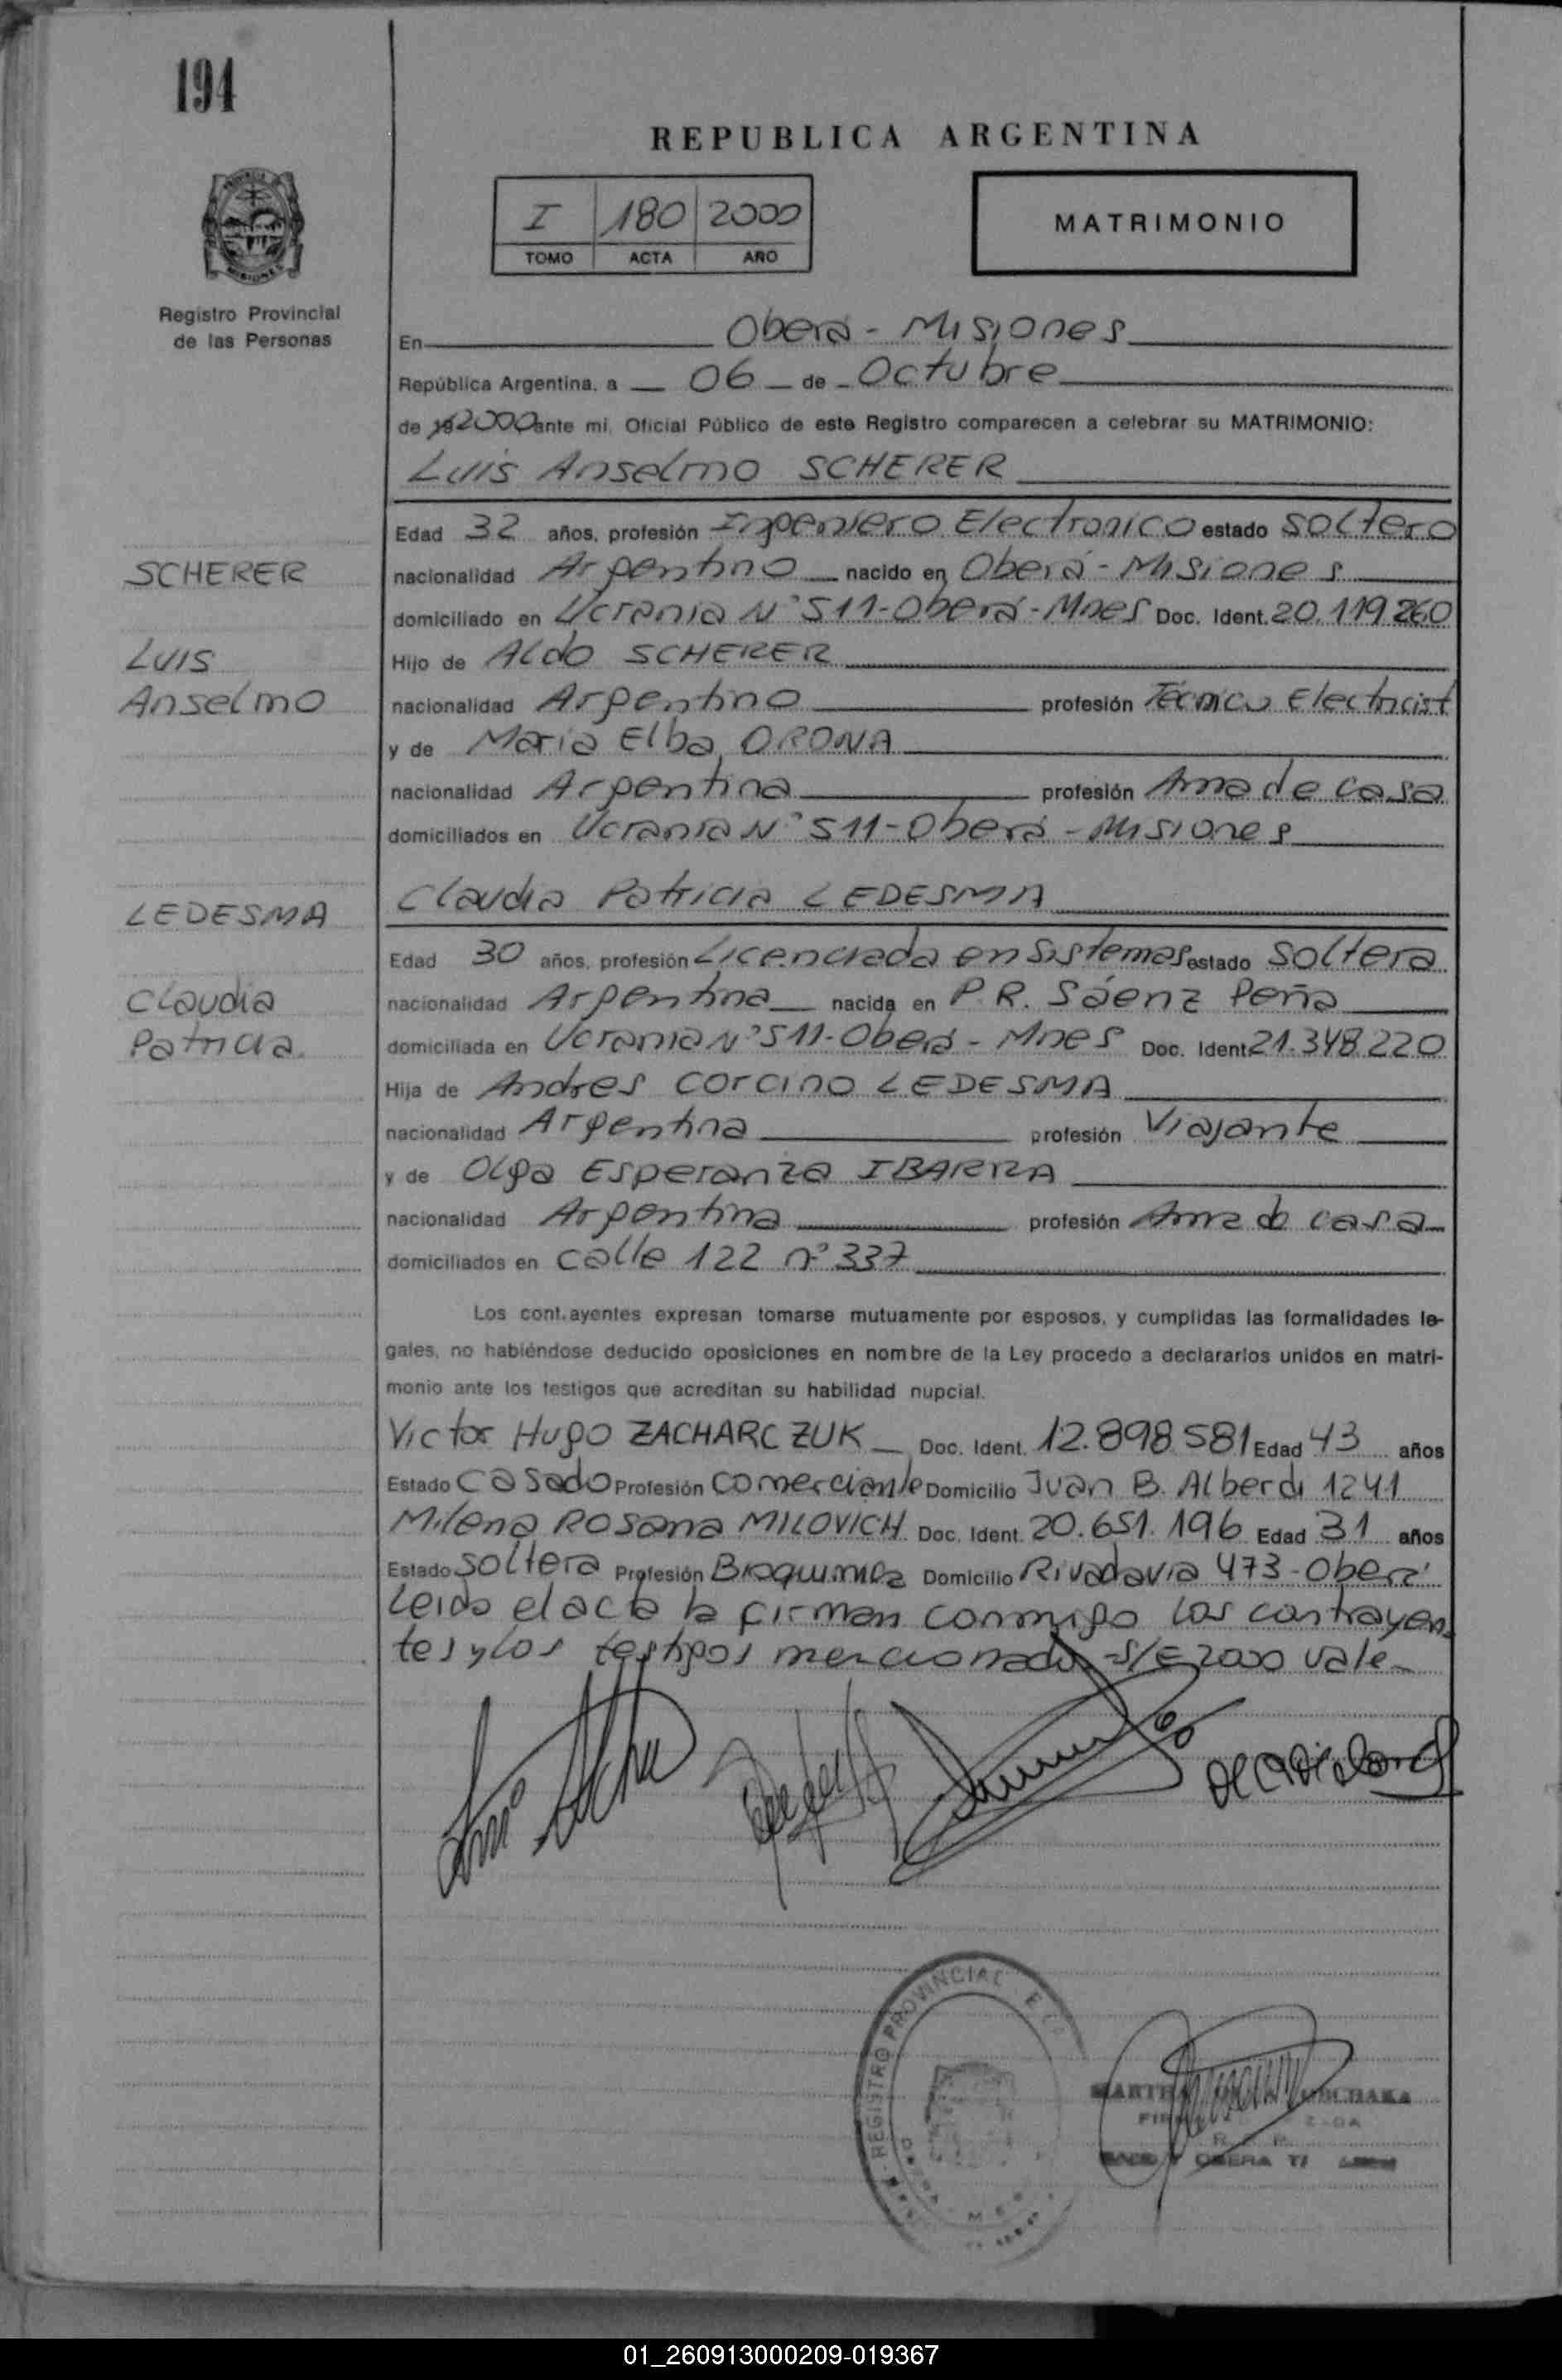 194
REPUBLICA ARGENTINA
I 180 2000
TOMO ACTA AÑO
MATRIMONIO
MISIONES
Registro Provincial
de las Personas
En Oberá - Misiones
República Argentina, a 06 de Octubre
de 19 2000 ante mi, Oficial Público de este Registro comparecen a celebrar su MATRIMONIO:
Luis Anselmo SCHERER
Edad 32 años, profesión Ingeniero Electronico estado soltero
SCHERER
nacionalidad Argentino nacido en Oberá - Misiones
domiciliado en Ucrania N° 511 - Oberá - Mnes Doc. Ident. 20.119.260
Luis
Hijo de Aldo SCHERER
Anselmo
nacionalidad Argentino profesión Técnico Electricist
y de Maria Elba ORONA
nacionalidad Argentina profesión Ama de casa
domiciliados en Ucrania N° 511 - Oberá - Misiones
LEDESMA
Claudia Patricia LEDESMA
Edad 30 años, profesión Licenciada en Sistemas estado soltera
Claudia
nacionalidad Argentina nacida en P.R. Sáenz Peña
Patricia
domiciliada en Ucrania N° 511 - Oberá - Mnes Doc. Ident 21.348.220
Hija de Andres Corcino LEDESMA
nacionalidad Argentina profesión Viajante
y de Olga Esperanza IBARRA
nacionalidad Argentina profesión Ama de casa
domiciliados en calle 122 n° 337
Los cont.ayentes expresan tomarse mutuamente por esposos, y cumplidas las formalidades le-
gales, no habiéndose deducido oposiciones en nombre de la Ley procedo a declararlos unidos en matri-
monio ante los testigos que acreditan su habilidad nupcial.
Victor Hugo ZACHARCZUK Doc. Ident. 12.898.581 Edad 43 años
Estado Casado Profesión comerciante Domicilio Juan B. Alberdi 1241
Milena Rosana MILOVICH Doc. Ident. 20.651.196 Edad 31 años
Estado soltera Profesión Bioquimica Domicilio Rivadavia 473 - Oberá
Leida el acta la firman conmigo los contrayen-
tes y los testigos mencionados - S/E 2000 vale -
REGISTRO PROVINCIAL
OBERA
01_260913000209-019367